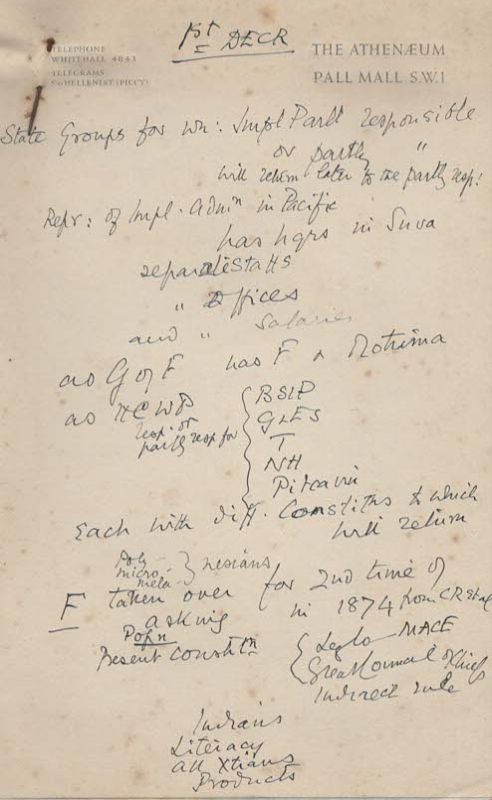 TELEPHONE
WHITEHALL 4843
TELEGRAMS
HELLENIST (PICCY)
1st DECR
THE ATHENÆUM
PALL MALL S.W.1
State Groups for wh: Impl Parlt responsible
or partly "
will return later to the partly resp:
Repr: of Impl. Admn in Pacific
has hqrs in Suva
separate staffs
" Offices
and " Salaries
as G of F has F & Rotuma
as HCWP
resp. or
partly resp for
BSIP
G&ES
T
NH
Pitcairn
Each with diff. Constitns to which
will return
Poly-
micro-
mela-
nesians
F taken over for 2nd time of
asking in 1874 from CR
Popn
Present constitn
Legco MACE
Great Council of Chiefs
Indirect rule
Indians
Literacy
all Xtians
Products